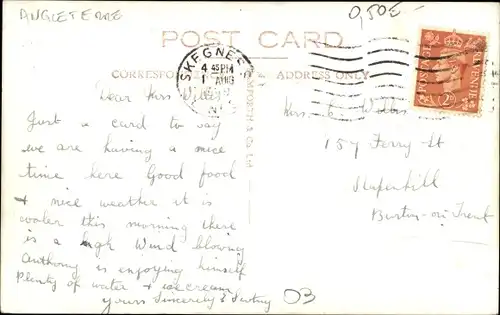 ANGLETERRE
0,50€
POST CARD
SKEGNESS
4 45 PM
1 AUG
POSTAGE
REVENUE
CORRESPONDENCE
ADDRESS ONLY
& Co Ltd
Dear Miss Willis
Just a card to say
we are having a nice
time here Good food
+ nice weather it is
cooler this morning there
is a high Wind blowing
Anthony is enjoying himself
Plenty of water + icecream
yours Sincerely
Miss Willis
157 Ferry St
Stapenhill
Burton-on-Trent
03